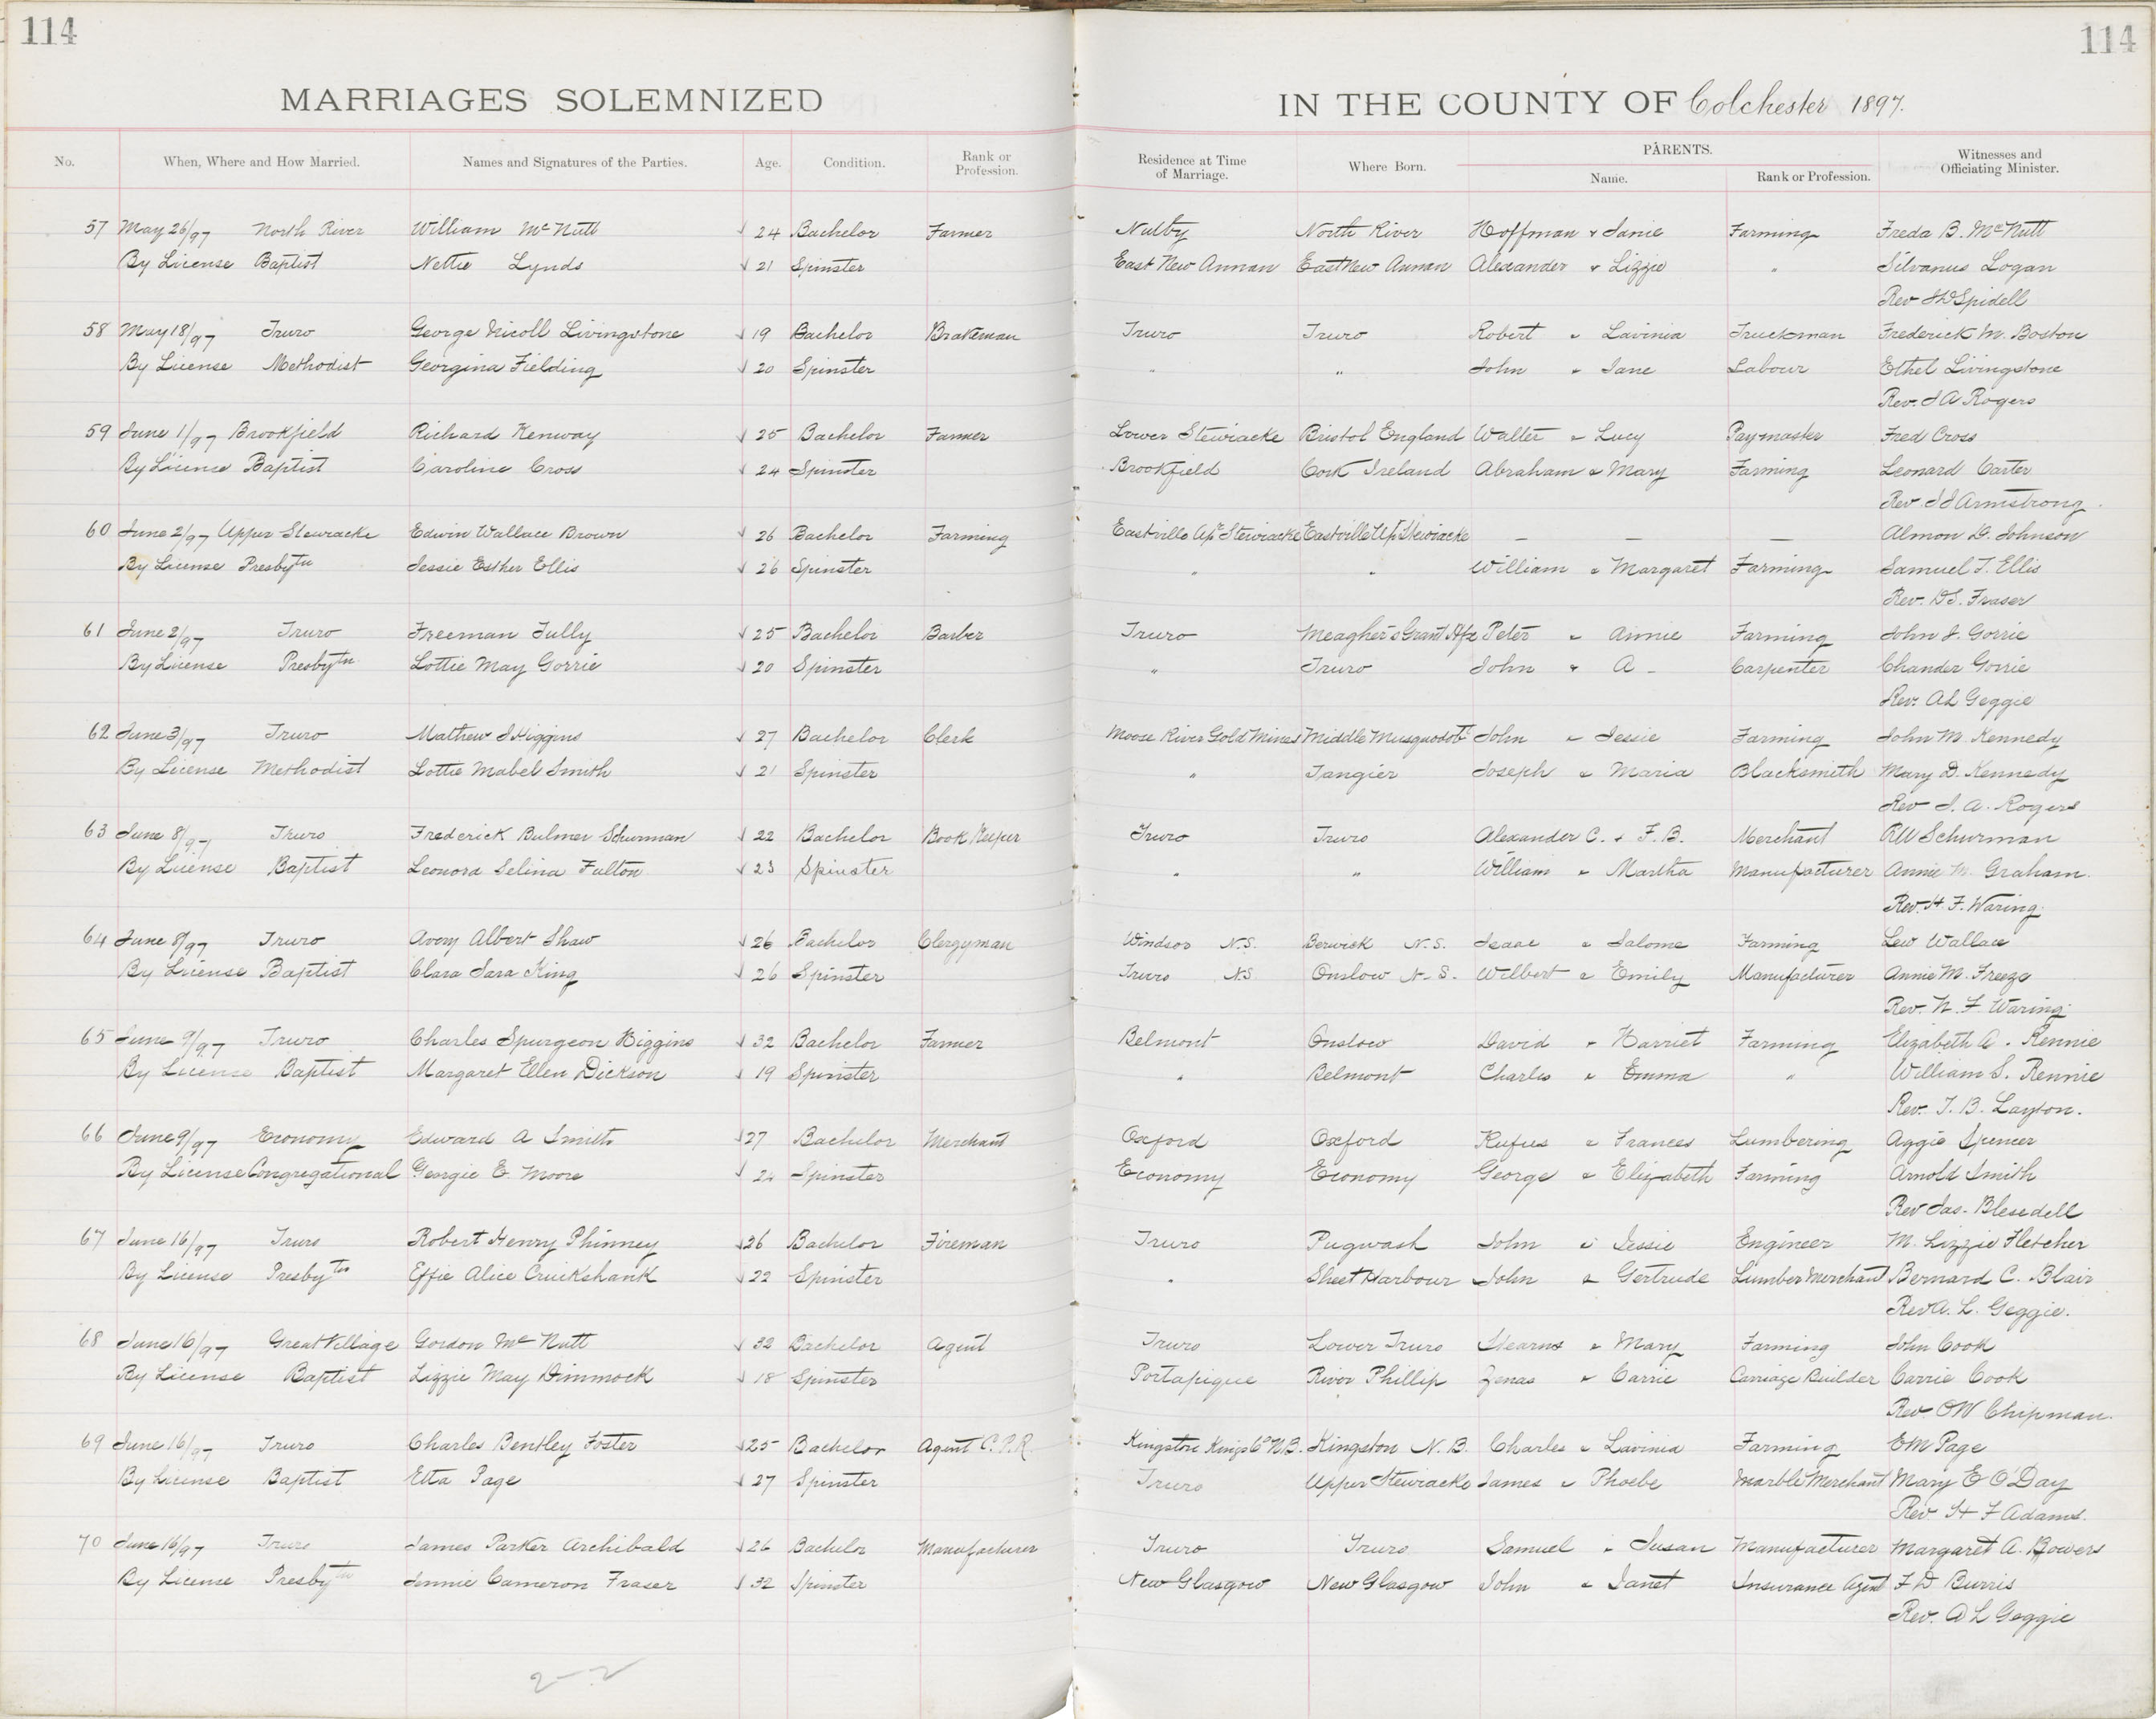 114
114
MARRIAGES SOLEMNIZED IN THE COUNTY OF Colchester 1897.
No. When, Where and How Married. Names and Signatures of the Parties. Age. Condition. Rank or Profession. Residence at Time of Marriage. Where Born. PARENTS. Name. Rank or Profession. Witnesses and Officiating Minister.
57 May 26/97 North River William Mc Nutt √ 24 Bachelor Farmer Nutby North River Hoffman & Janie Farming Freda B. McNutt
By License Baptist Nettie Lynds √ 21 Spinster East New Annan East New Annan Alexander & Lizzie " Silvanus Logan
Rev JW Spidell
58 May 18/97 Truro George Nicoll Livingstone √ 19 Bachelor Brakeman Truro Truro Robert & Lavinia Truckman Frederick M. Boston
By License Methodist Georgina Fielding √ 20 Spinster " " John & Jane Labour Ethel Livingstone
Rev. J A Rogers
59 June 1/97 Brookfield Richard Kenway √ 25 Bachelor Farmer Lower Stewiacke Bristol England Walter & Lucy Paymaster Fred Cross
By License Baptist Caroline Cross √ 24 Spinster Brookfield Cork Ireland Abraham & Mary Farming Leonard Carter
Rev. Armstrong.
60 June 2/97 Upper Stewiacke Edwin Wallace Brown √ 26 Bachelor Farming Eastville Upr Stewiacke Eastville Upr Stewiacke — — — Almon D. Johnson
By License Presbytn Jessie Esther Ellis √ 26 Spinster " " William & Margaret Farming Samuel T. Ellis
Rev. D S. Fraser
61 June 2/97 Truro Freeman Tully √ 25 Bachelor Barber Truro Meagher's Grant Hfx Peter & Annie Farming John J. Gorrie
By License Presbytn Lottie May Gorrie √ 20 Spinster " Truro John & A - Carpenter Chander Gorrie
Rev. A L Geggie
62 June 3/97 Truro Mathew J Higgins √ 27 Bachelor Clerk Moose River Gold Mines Middle Musquodobt John & Jessie Farming John M. Kennedy
By License Methodist Lottie Mabel Smith √ 21 Spinster " Tangier Joseph & Maria Blacksmith Mary D. Kennedy
Rev J. A. Rogers
63 June 8/97 Truro Frederick Bulmer Schurman √ 22 Bachelor Book Keeper Truro Truro Alexander C. & F. B. Merchant RW Schurman
By License Baptist Leonora Selina Fulton √ 23 Spinster " " William & Martha Manufacturer Annie M. Graham.
Rev. H. F. Waring
64 June 8/97 Truro Avery Albert Shaw √ 26 Bachelor Clergyman Windsor N.S. Berwick N.S. Isaac & Salome Farming Lew Wallace
By License Baptist Clara Sara King √ 26 Spinster Truro N.S. Onslow N.S. Wilbert & Emily Manufacturer Annie M. Freeze
Rev. H. F. Waring.
65 June 9/97 Truro Charles Spurgeon Higgins √ 32 Bachelor Farmer Belmont Onslow David & Harriet Farming Elizabeth A. Rennie
By License Baptist Margaret Ellen Dickson √ 19 Spinster " Belmont Charles & Emma " William S. Rennie
Rev. T. B. Layton.
66 June 9/97 Economy Edward A Smith √ 27 Bachelor Merchant Oxford Oxford Rufus & Frances Lumbering Aggie Spencer
By License Congregational Georgie E. Moore √ 24 Spinster Economy Economy George & Elizabeth Farming Arnold Smith
Rev Jas. Blesedell
67 June 16/97 Truro Robert Henry Phinney √ 26 Bachelor Fireman Truro Pugwash John & Jessie Engineer M. Lizzie Fletcher
By License Presbytn Effie Alice Cruickshank √ 22 Spinster " Sheet Harbour John & Gertrude Lumber Merchant Bernard C. Blair
Rev A. L. Geggie.
68 June 16/97 Great Village Gordon Mc Nutt √ 32 Bachelor Agent Truro Lower Truro Stearns & Mary Farming John Cook
By License Baptist Lizzie May Dimmock √ 18 Spinster Portapique River Phillip Zenas & Carrie Carriage Builder Carrie Cook
Rev. OW Chipman.
69 June 16/97 Truro Charles Bentley Foster √ 25 Bachelor Agent C.P.R. Kingston Kings Co N.B. Kingston N.B. Charles & Lavinia Farming EM Page
By License Baptist Etta Page √ 27 Spinster Truro Upper Stewiacke James & Phoebe Marble Merchant Mary E O'Day
Rev H F Adams.
70 June 16/97 Truro James Parker Archibald √ 26 Bachelor Manufacturer Truro Truro Samuel & Susan Manufacturer Margaret A. Bowers
By License Presbytn Jennie Cameron Fraser √ 32 Spinster New Glasgow New Glasgow John & Janet Insurance Agent F D Burris
Rev. A L Geggie